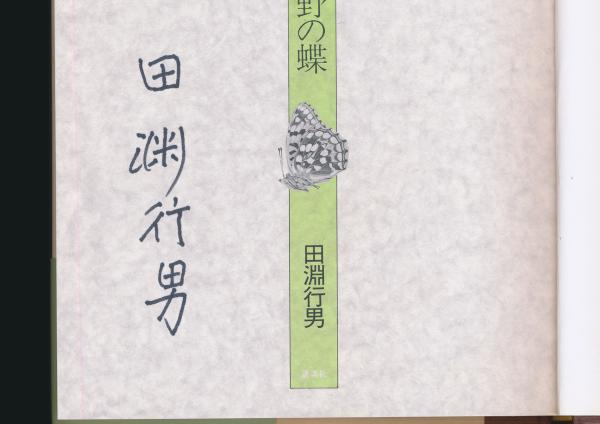 野の蝶
田淵行男
講談社
田渕行男